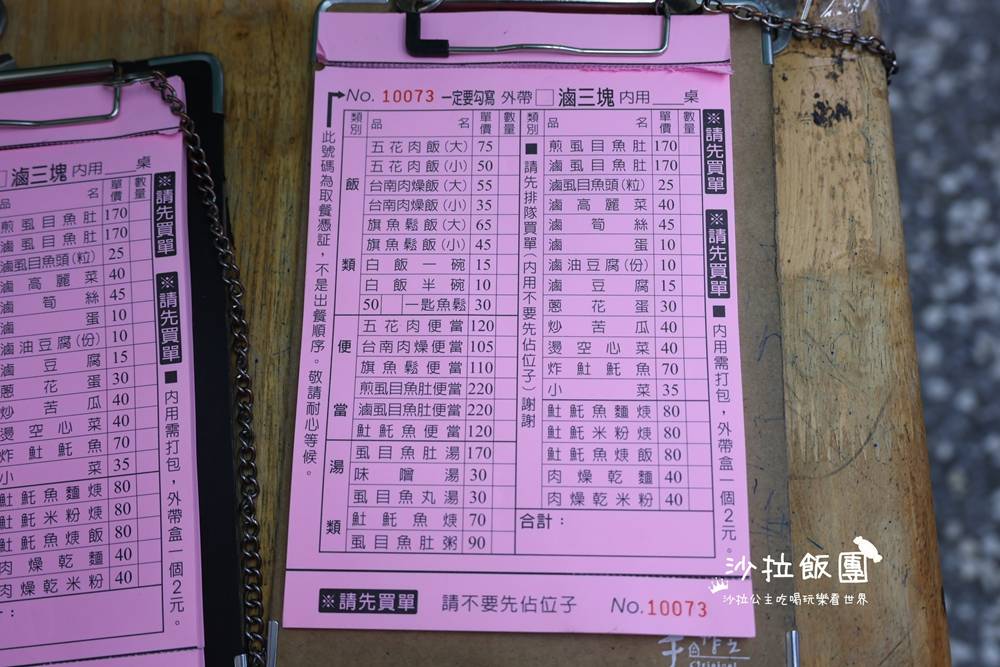 No. 10073 一定要勾寫 外帶□ 滷三塊 內用___桌
此號碼為取餐憑証，不是出餐順序。敬請耐心等候。
類別 品名 單價 數量
飯類
五花肉飯(大) 75
五花肉飯(小) 50
台南肉燥飯(大) 55
台南肉燥飯(小) 35
旗魚鬆飯(大) 65
旗魚鬆飯(小) 45
白飯一碗 15
白飯半碗 10
50 一匙魚鬆 30
便當
五花肉便當 120
台南肉燥便當 105
旗魚鬆便當 110
煎虱目魚肚便當 220
滷虱目魚肚便當 220
𩵚魠魚便當 120
湯類
虱目魚肚湯 170
味噌湯 30
虱目魚丸湯 30
𩵚魠魚焿 70
虱目魚肚粥 90
■請先排隊買單(內用不要先佔位子)謝謝
類別 品名 單價 數量
煎虱目魚肚 170
滷虱目魚肚 170
滷虱目魚頭(粒) 25
滷高麗菜 40
滷筍絲 45
滷蛋 10
滷油豆腐(份) 10
滷豆腐 15
蔥花蛋 30
炒苦瓜 40
燙空心菜 40
炸𩵚魠魚 70
小菜 35
𩵚魠魚麵焿 80
𩵚魠米粉焿 80
𩵚魠魚焿飯 80
肉燥乾麵 40
肉燥乾米粉 40
合計：
※請先買單 ※請先買單 ■內用需打包，外帶盒一個2元。
※請先買單 請不要先佔位子 No.10073
□ 滷三塊 內用___桌
品名 單價 數量
煎虱目魚肚 170
滷虱目魚肚 170
滷虱目魚頭(粒) 25
滷高麗菜 40
滷筍絲 45
滷蛋 10
滷油豆腐(份) 10
滷豆腐 15
蔥花蛋 30
炒苦瓜 40
燙空心菜 40
炸𩵚魠魚 70
小菜 35
𩵚魠魚麵焿 80
𩵚魠魚米粉焿 80
𩵚魠魚焿飯 80
肉燥乾麵 40
肉燥乾米粉 40
：
※請先買單 ※請先買單 ■內用需打包，外帶盒一個2元。
沙拉飯團
沙拉公主吃喝玩樂看世界
Original